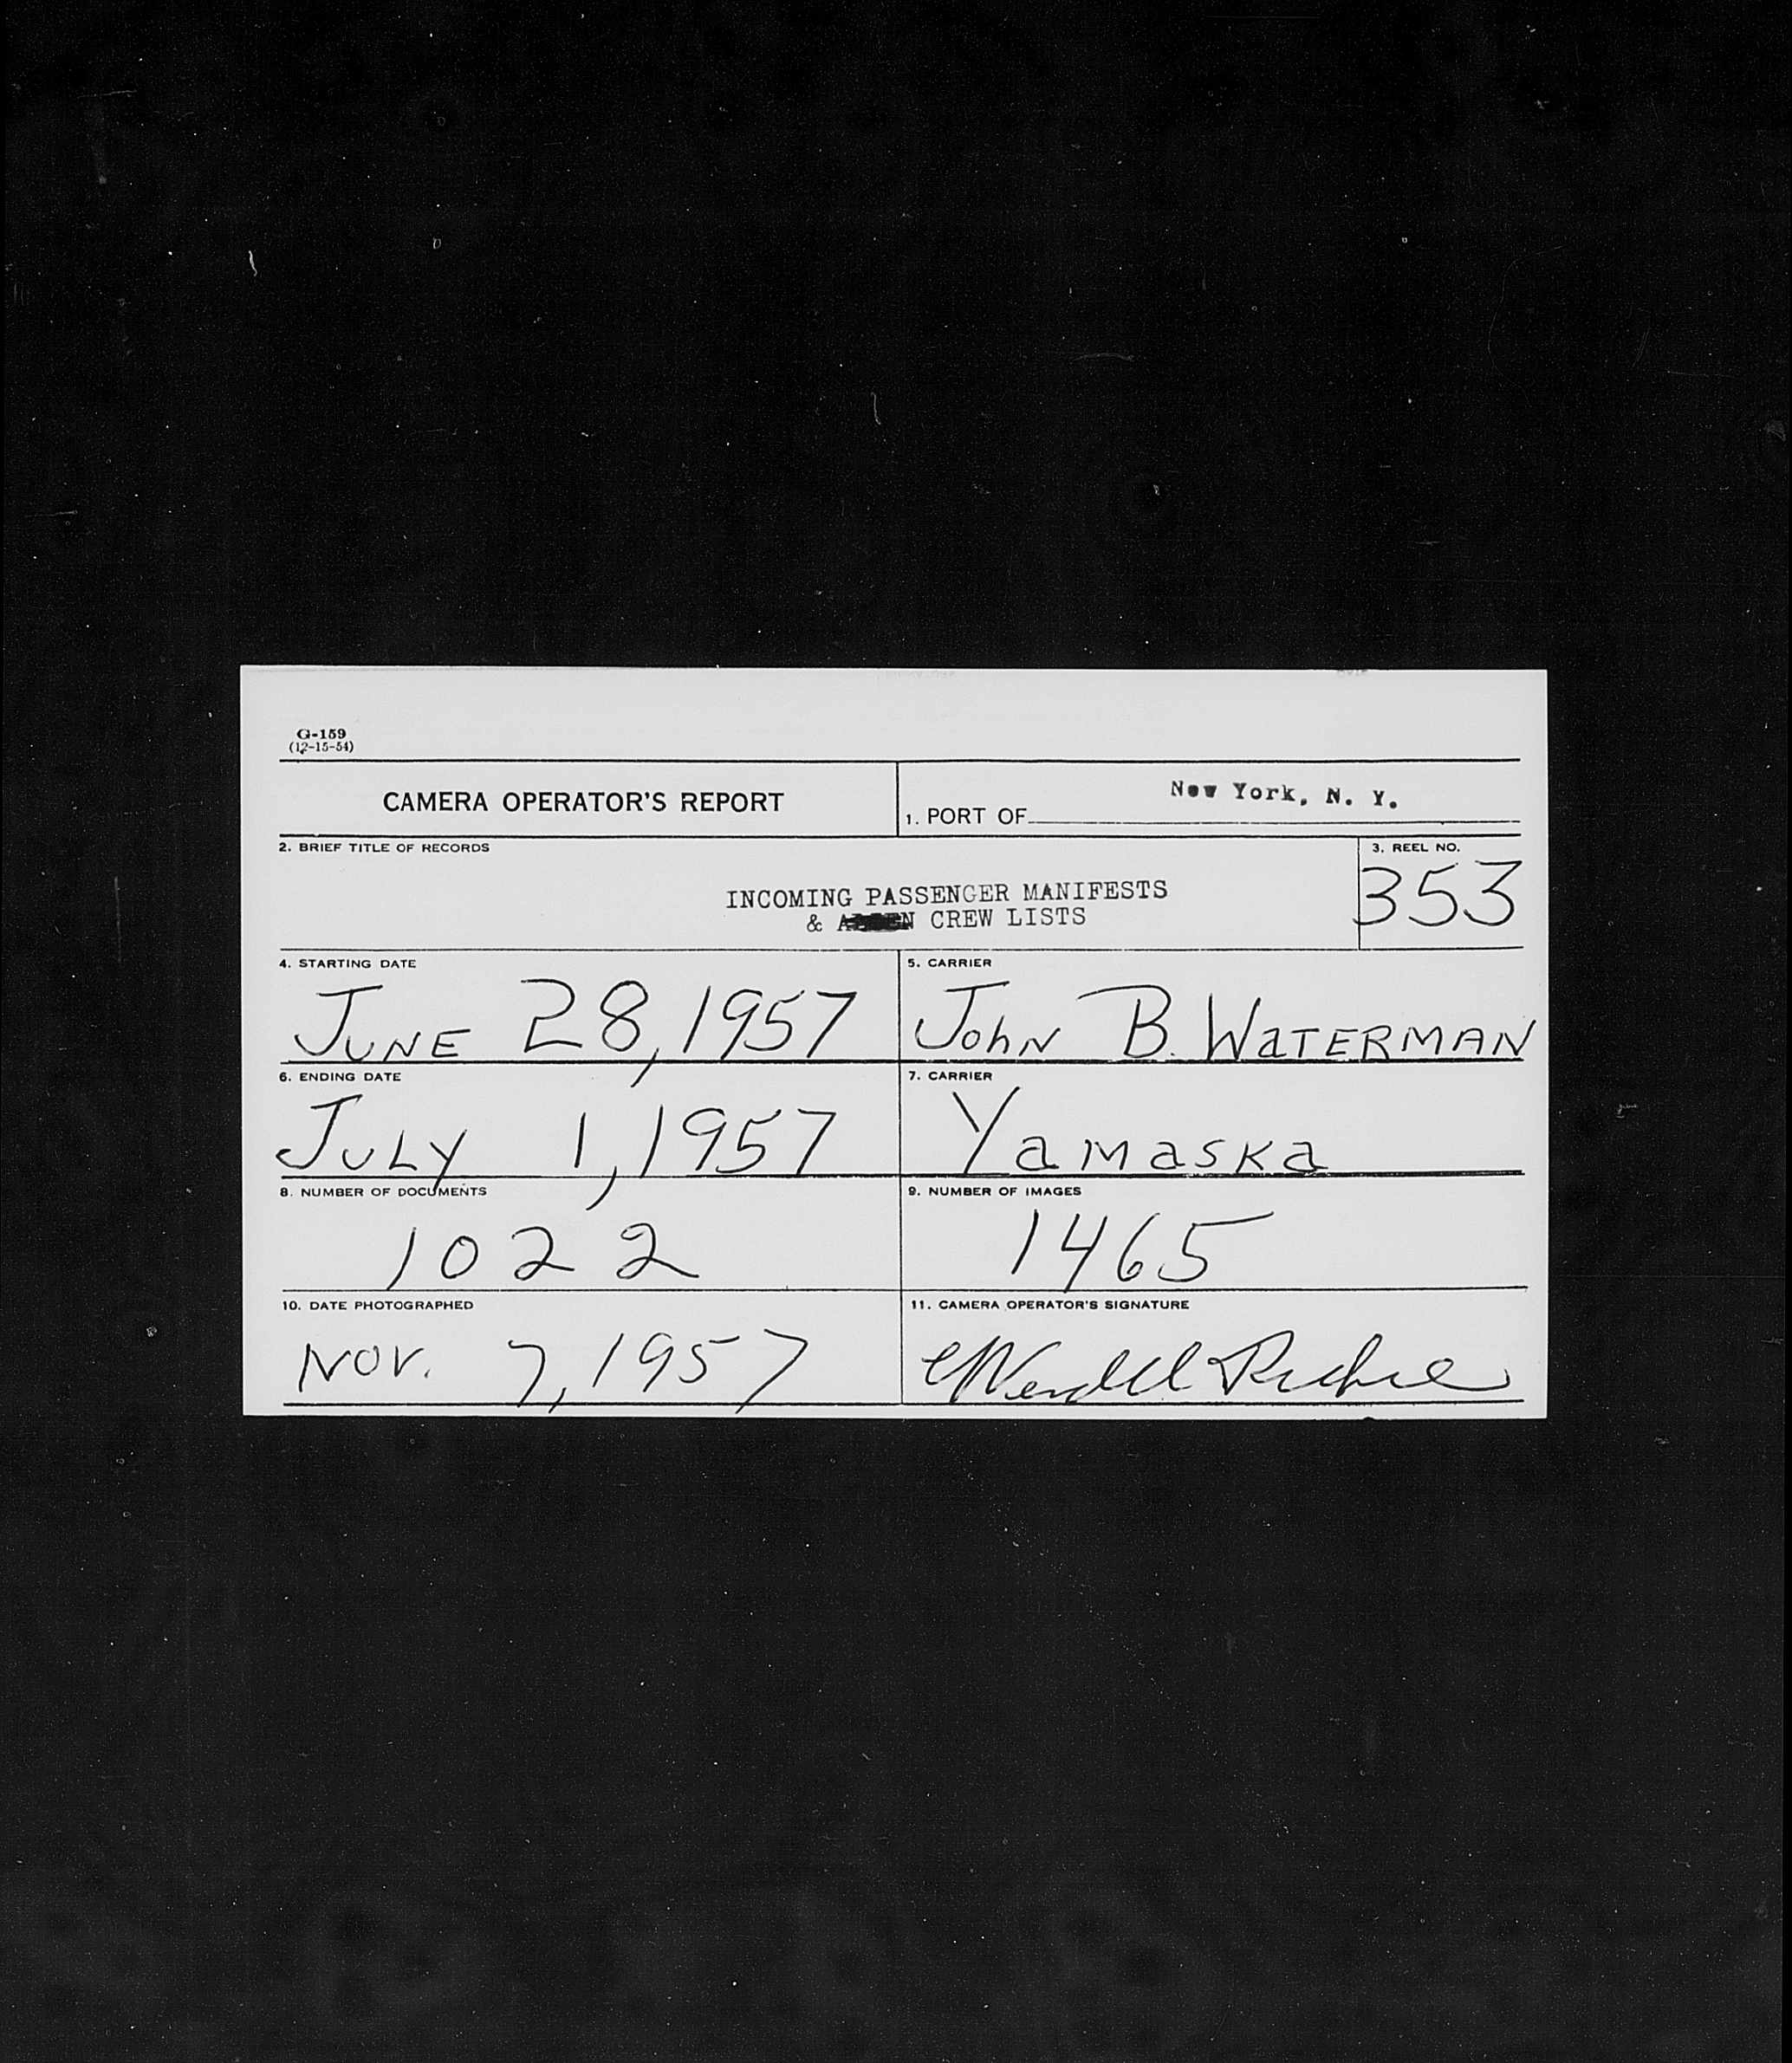 G-159
(12-15-54)
CAMERA OPERATOR'S REPORT
1. PORT OF New York, N. Y.
2. BRIEF TITLE OF RECORDS
3. REEL NO.
INCOMING PASSENGER MANIFESTS
& CREW LISTS
353
4. STARTING DATE
JUNE 28, 1957
5. CARRIER
John B. WaTERMAN
6. ENDING DATE
JULY 1, 1957
7. CARRIER
Yamaska
8. NUMBER OF DOCUMENTS
1022
9. NUMBER OF IMAGES
1465
10. DATE PHOTOGRAPHED
NOV. 7, 1957
11. CAMERA OPERATOR'S SIGNATURE
Wendell